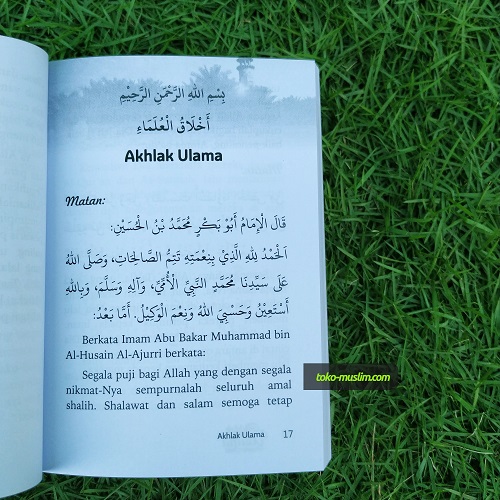 بِسْمِ اللهِ الرَّحْمَنِ الرَّحِيْمِ
أَخْلَاقُ الْعُلَمَاءِ
Akhlak Ulama
Matan:
قَالَ الْإِمَامُ أَبُوْ بَكْرٍ مُحَمَّدُ بْنُ الْحُسَيْنِ:
اَلْحَمْدُ لِلهِ الَّذِيْ بِنِعْمَتِهِ تَتِمُّ الصَّالِحَاتُ، وَصَلَّى اللهُ
عَلَى سَيِّدِنَا مُحَمَّدٍ النَّبِيِّ الْأُمِّيِّ، وَآلِهِ وَسَلَّمَ، وَبِاللهِ
أَسْتَعِيْنُ وَحَسْبِيَ اللهُ وَنِعْمَ الْوَكِيْلُ. أَمَّا بَعْدُ:
Berkata Imam Abu Bakar Muhammad bin
Al-Husain Al-Ajurri berkata:
Segala puji bagi Allah yang dengan segala
nikmat-Nya sempurnalah seluruh amal
shalih. Shalawat dan salam semoga tetap
Akhlak Ulama 17
toko-muslim.com